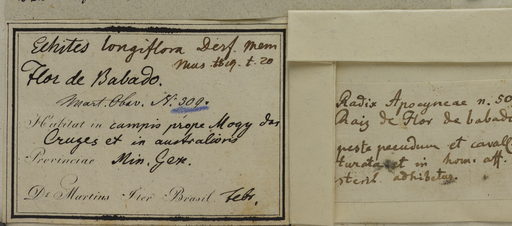 Echites longiflora Desf. Mem
Mus. t. 20
Flor de Babado.
Mart. Obsv. N. 309.
Habitat in campis prope Mogy das
Cruzes et in australiori
Provinciae Min. Ger.
Dr Martius Iter Brasil. Febr.
Radix Apocyneae n. 50
Raiz de Flor de babado
peste pecudum et cavall
et in hom. aff.
adhibetur.